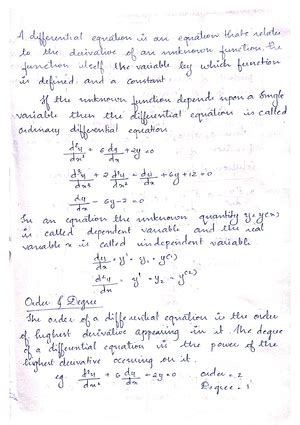 A differential equation is an equation that relates
to the derivative of an unknown function, the
function itself the variable by which function
is defined and a constant
If the unknown function depends upon a single
variable then the differential equation is called
ordinary differential equation
d²y/dx² + 6 dy/dx + 2y = 0
d³y/dx³ + 2 d²y/dx² - dy/dx + 6y + 12 = 0
dy/dx - 6y - 2 = 0
In an equation the unknown quantity y = y(x)
is called dependent variable and the real
variable x is called independent variable
dy/dx = y' = y₁ = y⁽¹⁾
d²y/dx² = y² = y₂ = y⁽²⁾
Order & Degree
The order of a differential equation is the order
of highest derivative appearing in it. The degree
of a differential equation is the power of the
highest derivative occuring on it.
eg. d²y/dx² + 6 dy/dx - 2y = 0 order = 2
Degree = 1